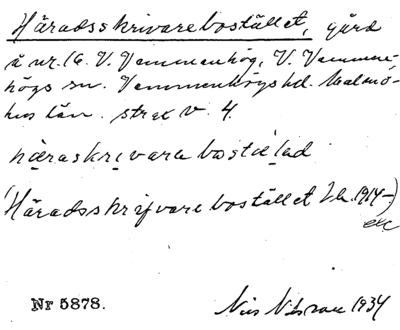 Häradsskrivarebostället, gård
å nr. 16 V. Vemmenhög, V. Vemmen-
högs sn. Vemmenhögs hd. Malmö-
hus län. strax v. 4.
häraskrivara bostäled
(Häradsskrifvarebostället Lk. 1914-)
etc
Nr 5878.
Nils Nilsson 1934